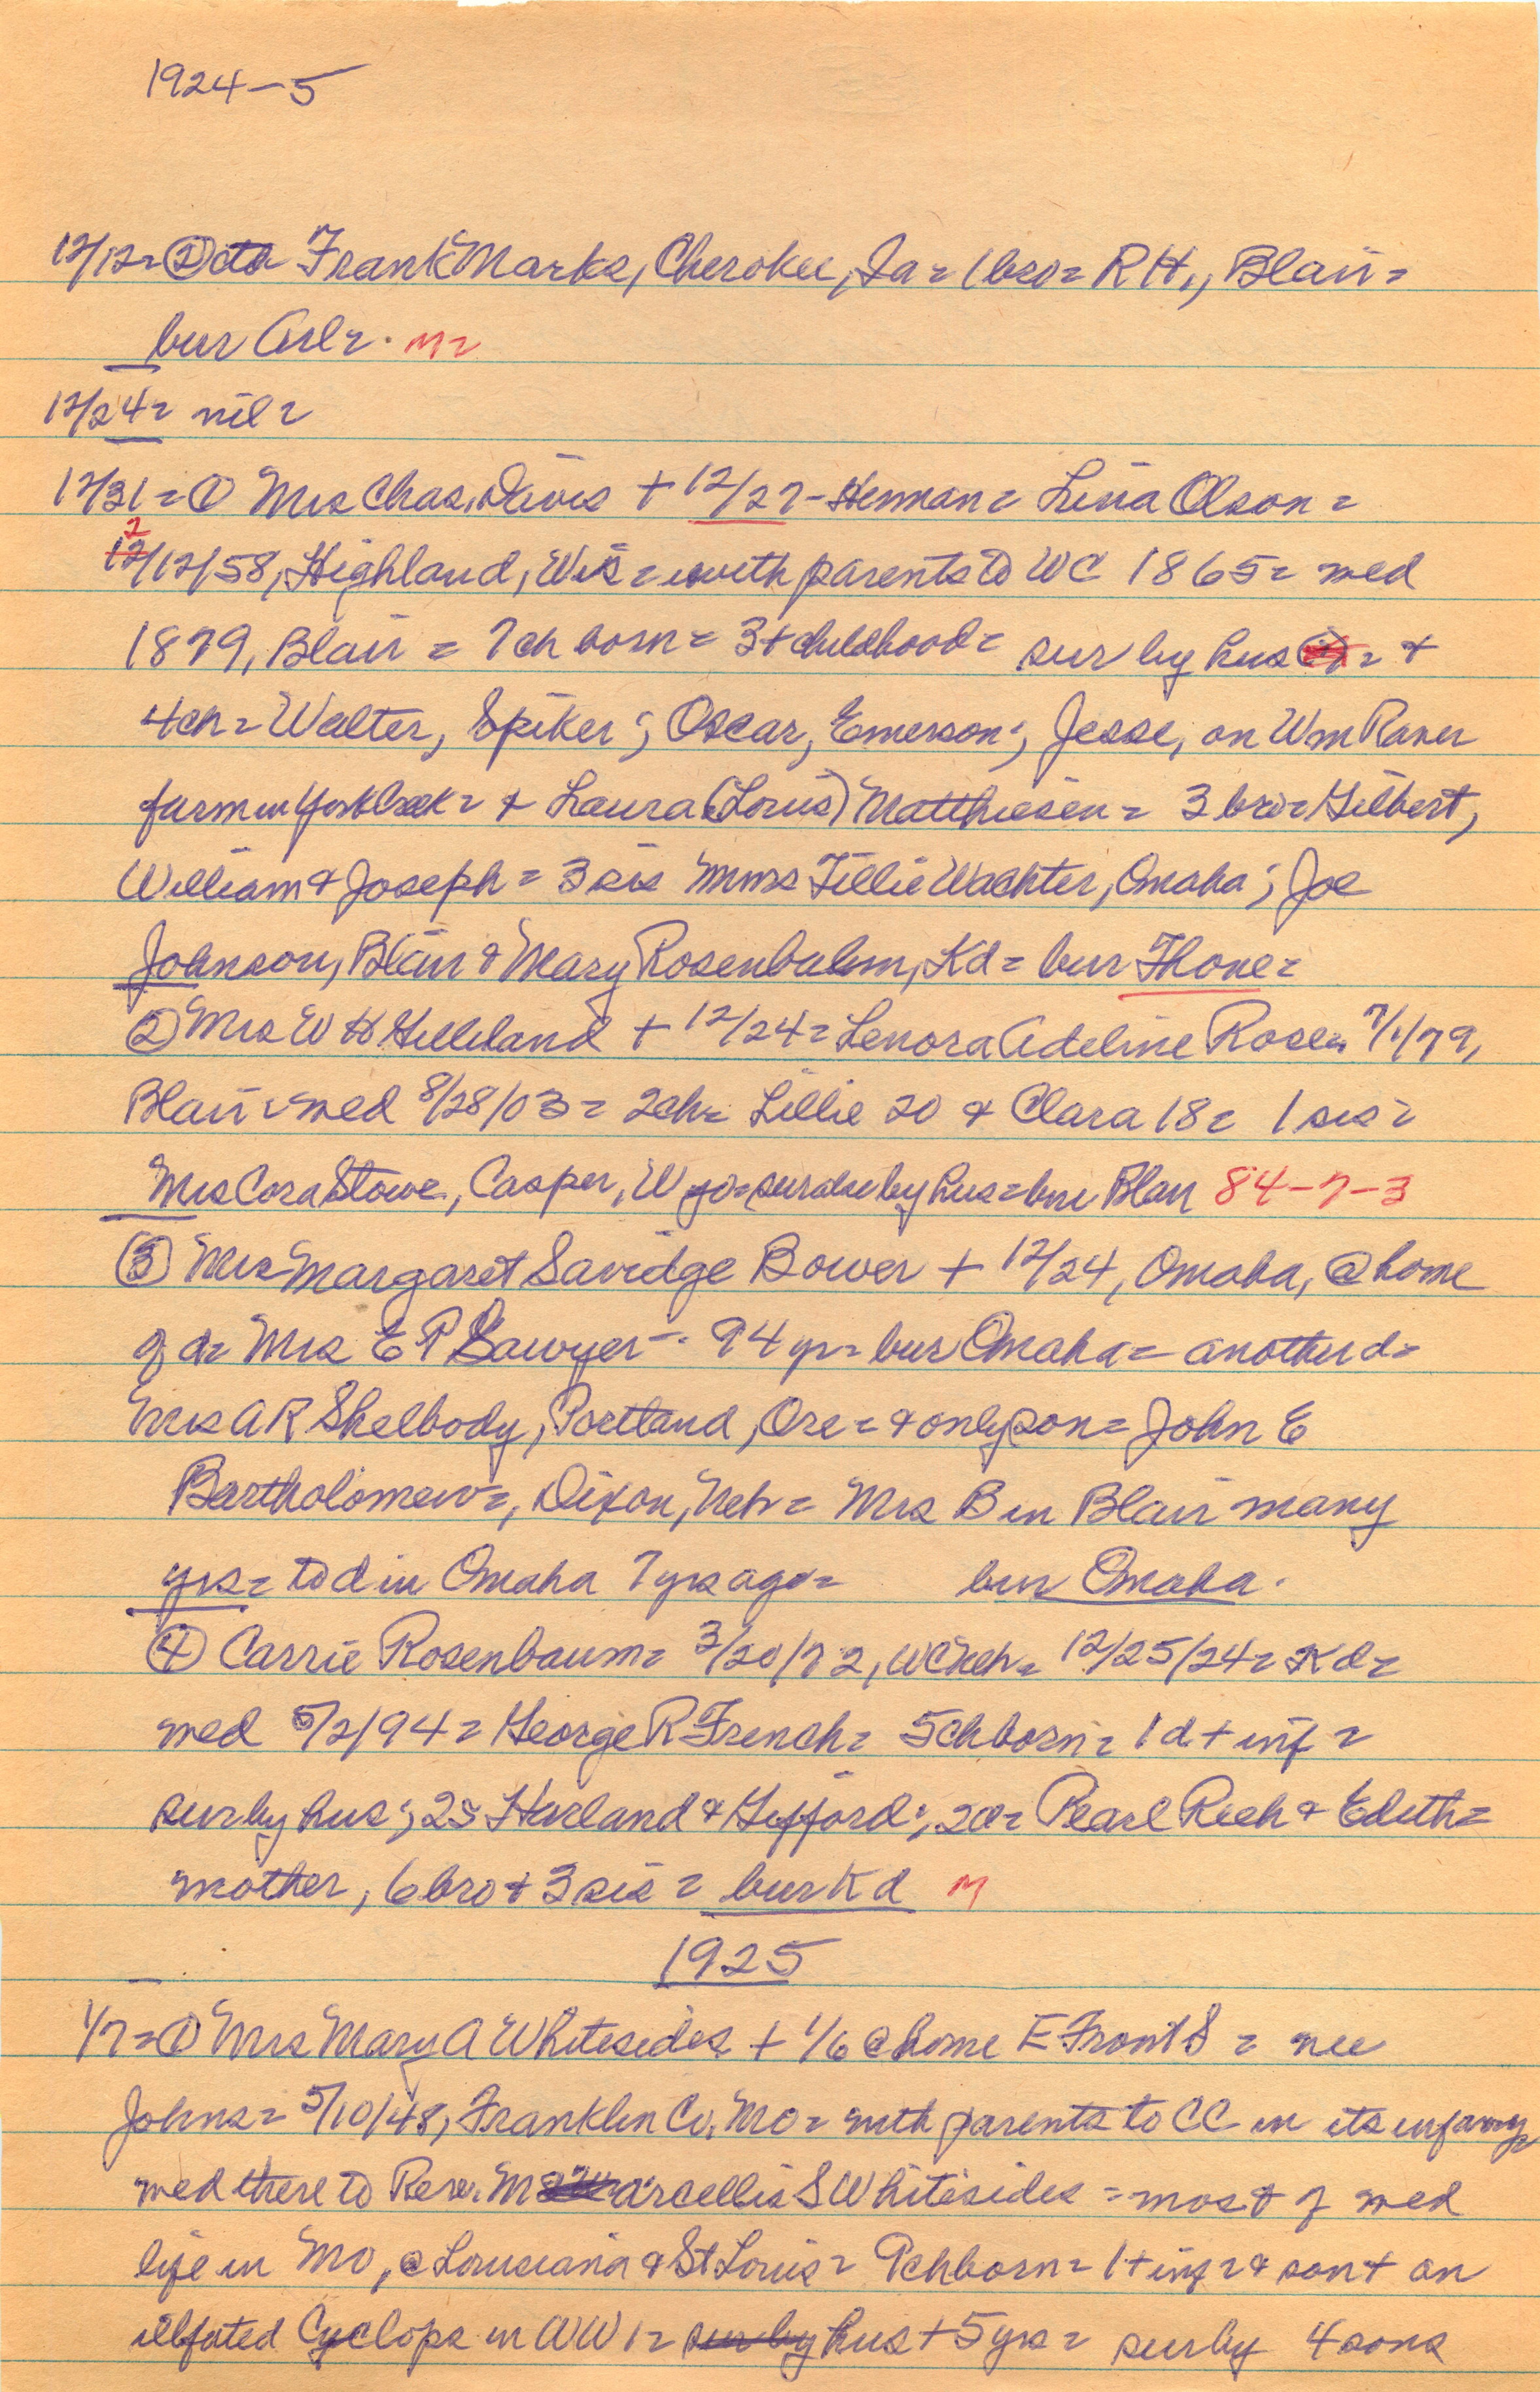 1924-5
12/12= ② Frank Marks, Cherokee, Ia = 1 bro = R H., Blair =
bur Arl =. m =
12/24 = nil =
12/31 = ① Mrs Chas. Davis + 12/27 - Herman = Lina Olson =
2
12/12/58, Highland, Wis = with parents to WC 1865 = med
1879, Blair = 7 ch born = 3 + childhood = sur by hus = +
4 ch = Walter, Spiker; Oscar, Emerson; Jesse, on Wm Raver
farm in York Creek = & Laura (Louis) Matthiesen = 3 bro = Gilbert,
William & Joseph = 3 sis Mmes Tillie Wachter, Omaha; Joe
Johnson, Blair & Mary Rosenbalm, Kd = bur Thone =
② Mrs W H Gilleland + 12/24 = Lenora Adeline Rose = 7/1/79,
Blair = med 8/28/03 = 2 ch = Lillie 20 & Clara 18 = 1 sis =
Mrs Cora Stowe, Casper, Wyo = sur also by hus = bur Blair 84-7-3
③ Mrs Margaret Savidge Bower + 12/24, Omaha, @ home
of d = Mrs E P Sawyer -. 94 yr = bur Omaha = another d =
Mrs A R Shelbody, Portland, Ore = & only son = John E
Bartholomew =, Dixon, Neb = Mrs B in Blair many
yrs = to d in Omaha 7 yrs ago = bur Omaha.
④ Carrie Rosenbaum = 3/20/72, WC Neb = 12/25/24 = Kd =
med 5/2/94 = George R French = 5 ch born = 1 d + inf =
sur by hus; 2 s Harland & Gifford; 2 d = Pearl Rech & Edith =
mother, 6 bro & 3 sis = bur Kd M
1925
1/7 = ① Mrs Mary A Whitesides + 1/6 @ home E Front S = nee
Johns = 5/10/48, Franklin Co. Mo = with parents to CC in its infancy
med there to Rev. Marcellis S Whitesides = most of med
life in Mo, @ Louisiana & St Louis = 9 ch born = 1 + inf = & son + on
illfated Cyclops in WW 1 = sur by hus + 5 yrs = sur by 4 sons